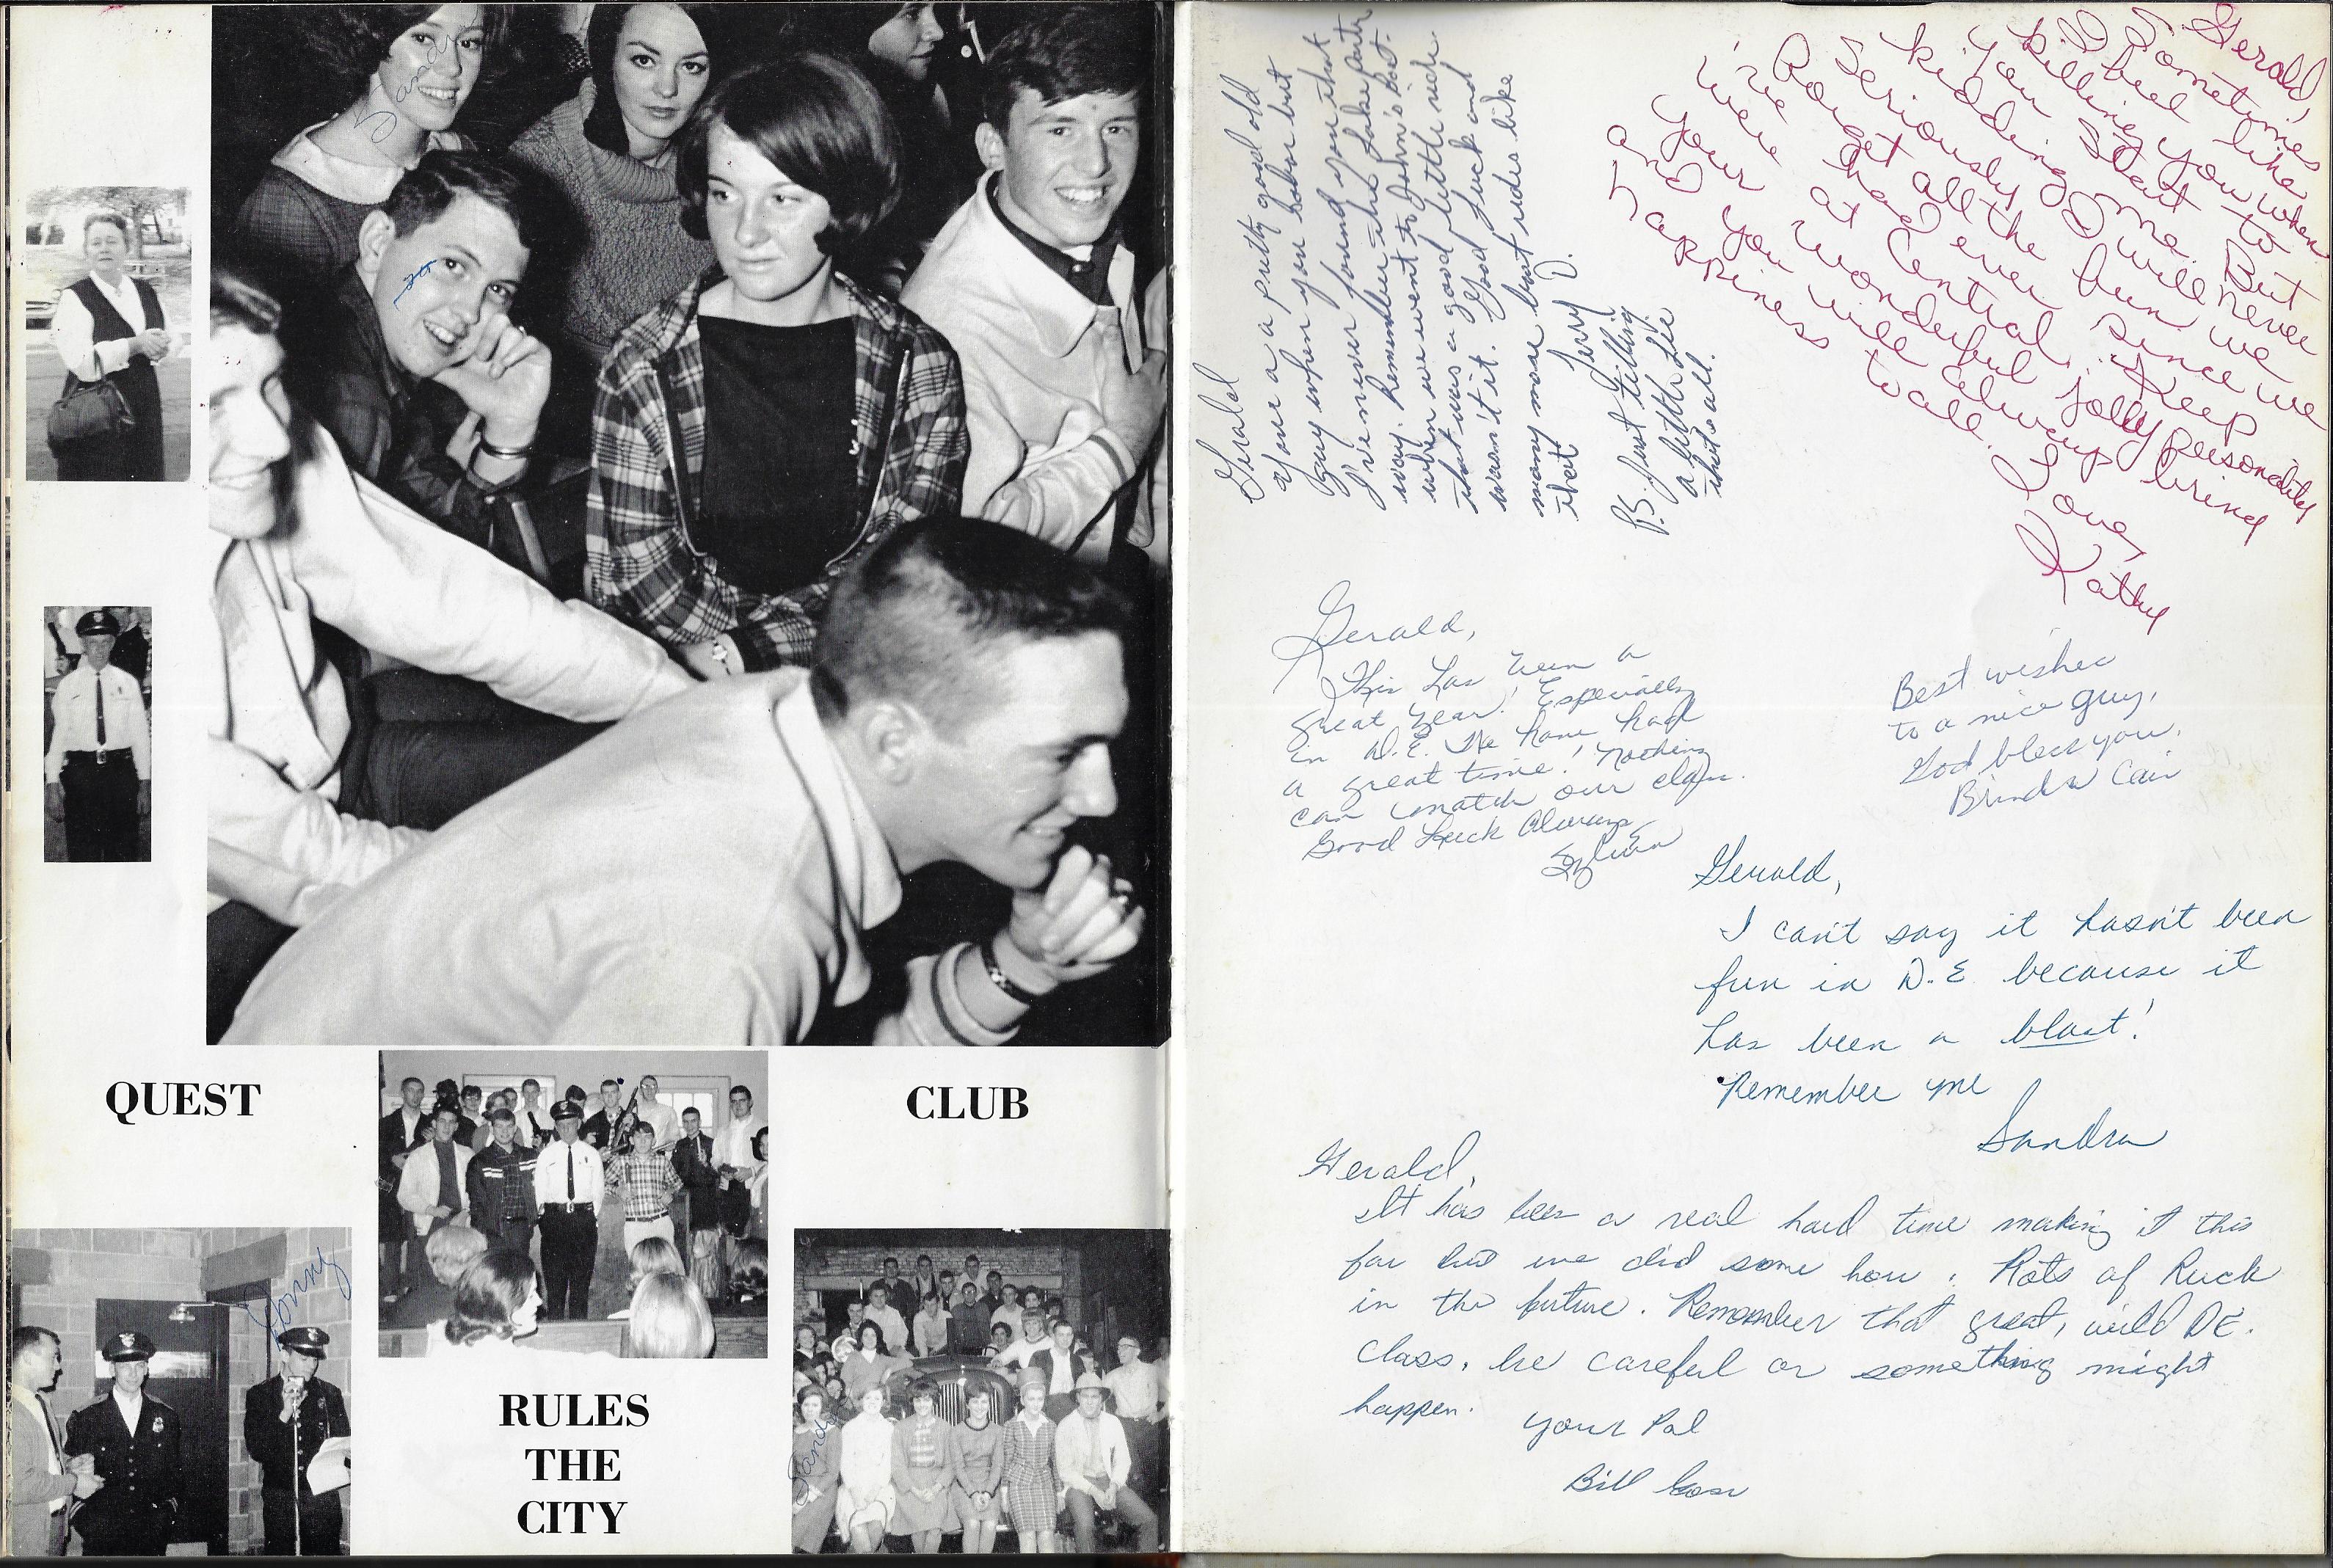 Sandra
QUEST
CLUB
Sonny
RULES
THE
CITY
Sandra
Gerald
Your a pretty good old
Guy when your sober but
I've never found you that
way. Remember the Lake party
when we went to John's hot.
that was a good little ride
wasn't it. Good luck and
many more boat rides like
that
Jerry D.
P.S. Just telling
a little lie
that's all.
Gerald,
Sometimes
I'll feel like
killing you when
you start to
kidding me. But
Seriously I will never
forget all the fun we
've had ever since we
were at Central. Keep
your wonderful jolly personality
and you will always bring
happiness to all.
Love,
Kathy
Gerald,
This has been a
great year! Especially
in D.E. We have had
a great time! Nothing
can match our class.
Good Luck Always,
Sylvia
Best wishes
to a nice guy,
God bless you.
Brinda Cain
Gerald,
I can't say it hasn't been
fun in D.E because it
has been a blast!
Remember me
Sandra
Gerald,
It has been a real hard time making it this
far but we did some how. Rots of Ruck
in the future. Remember that great, wild DE.
class, be careful or something might
happen.
your Pal
Bill